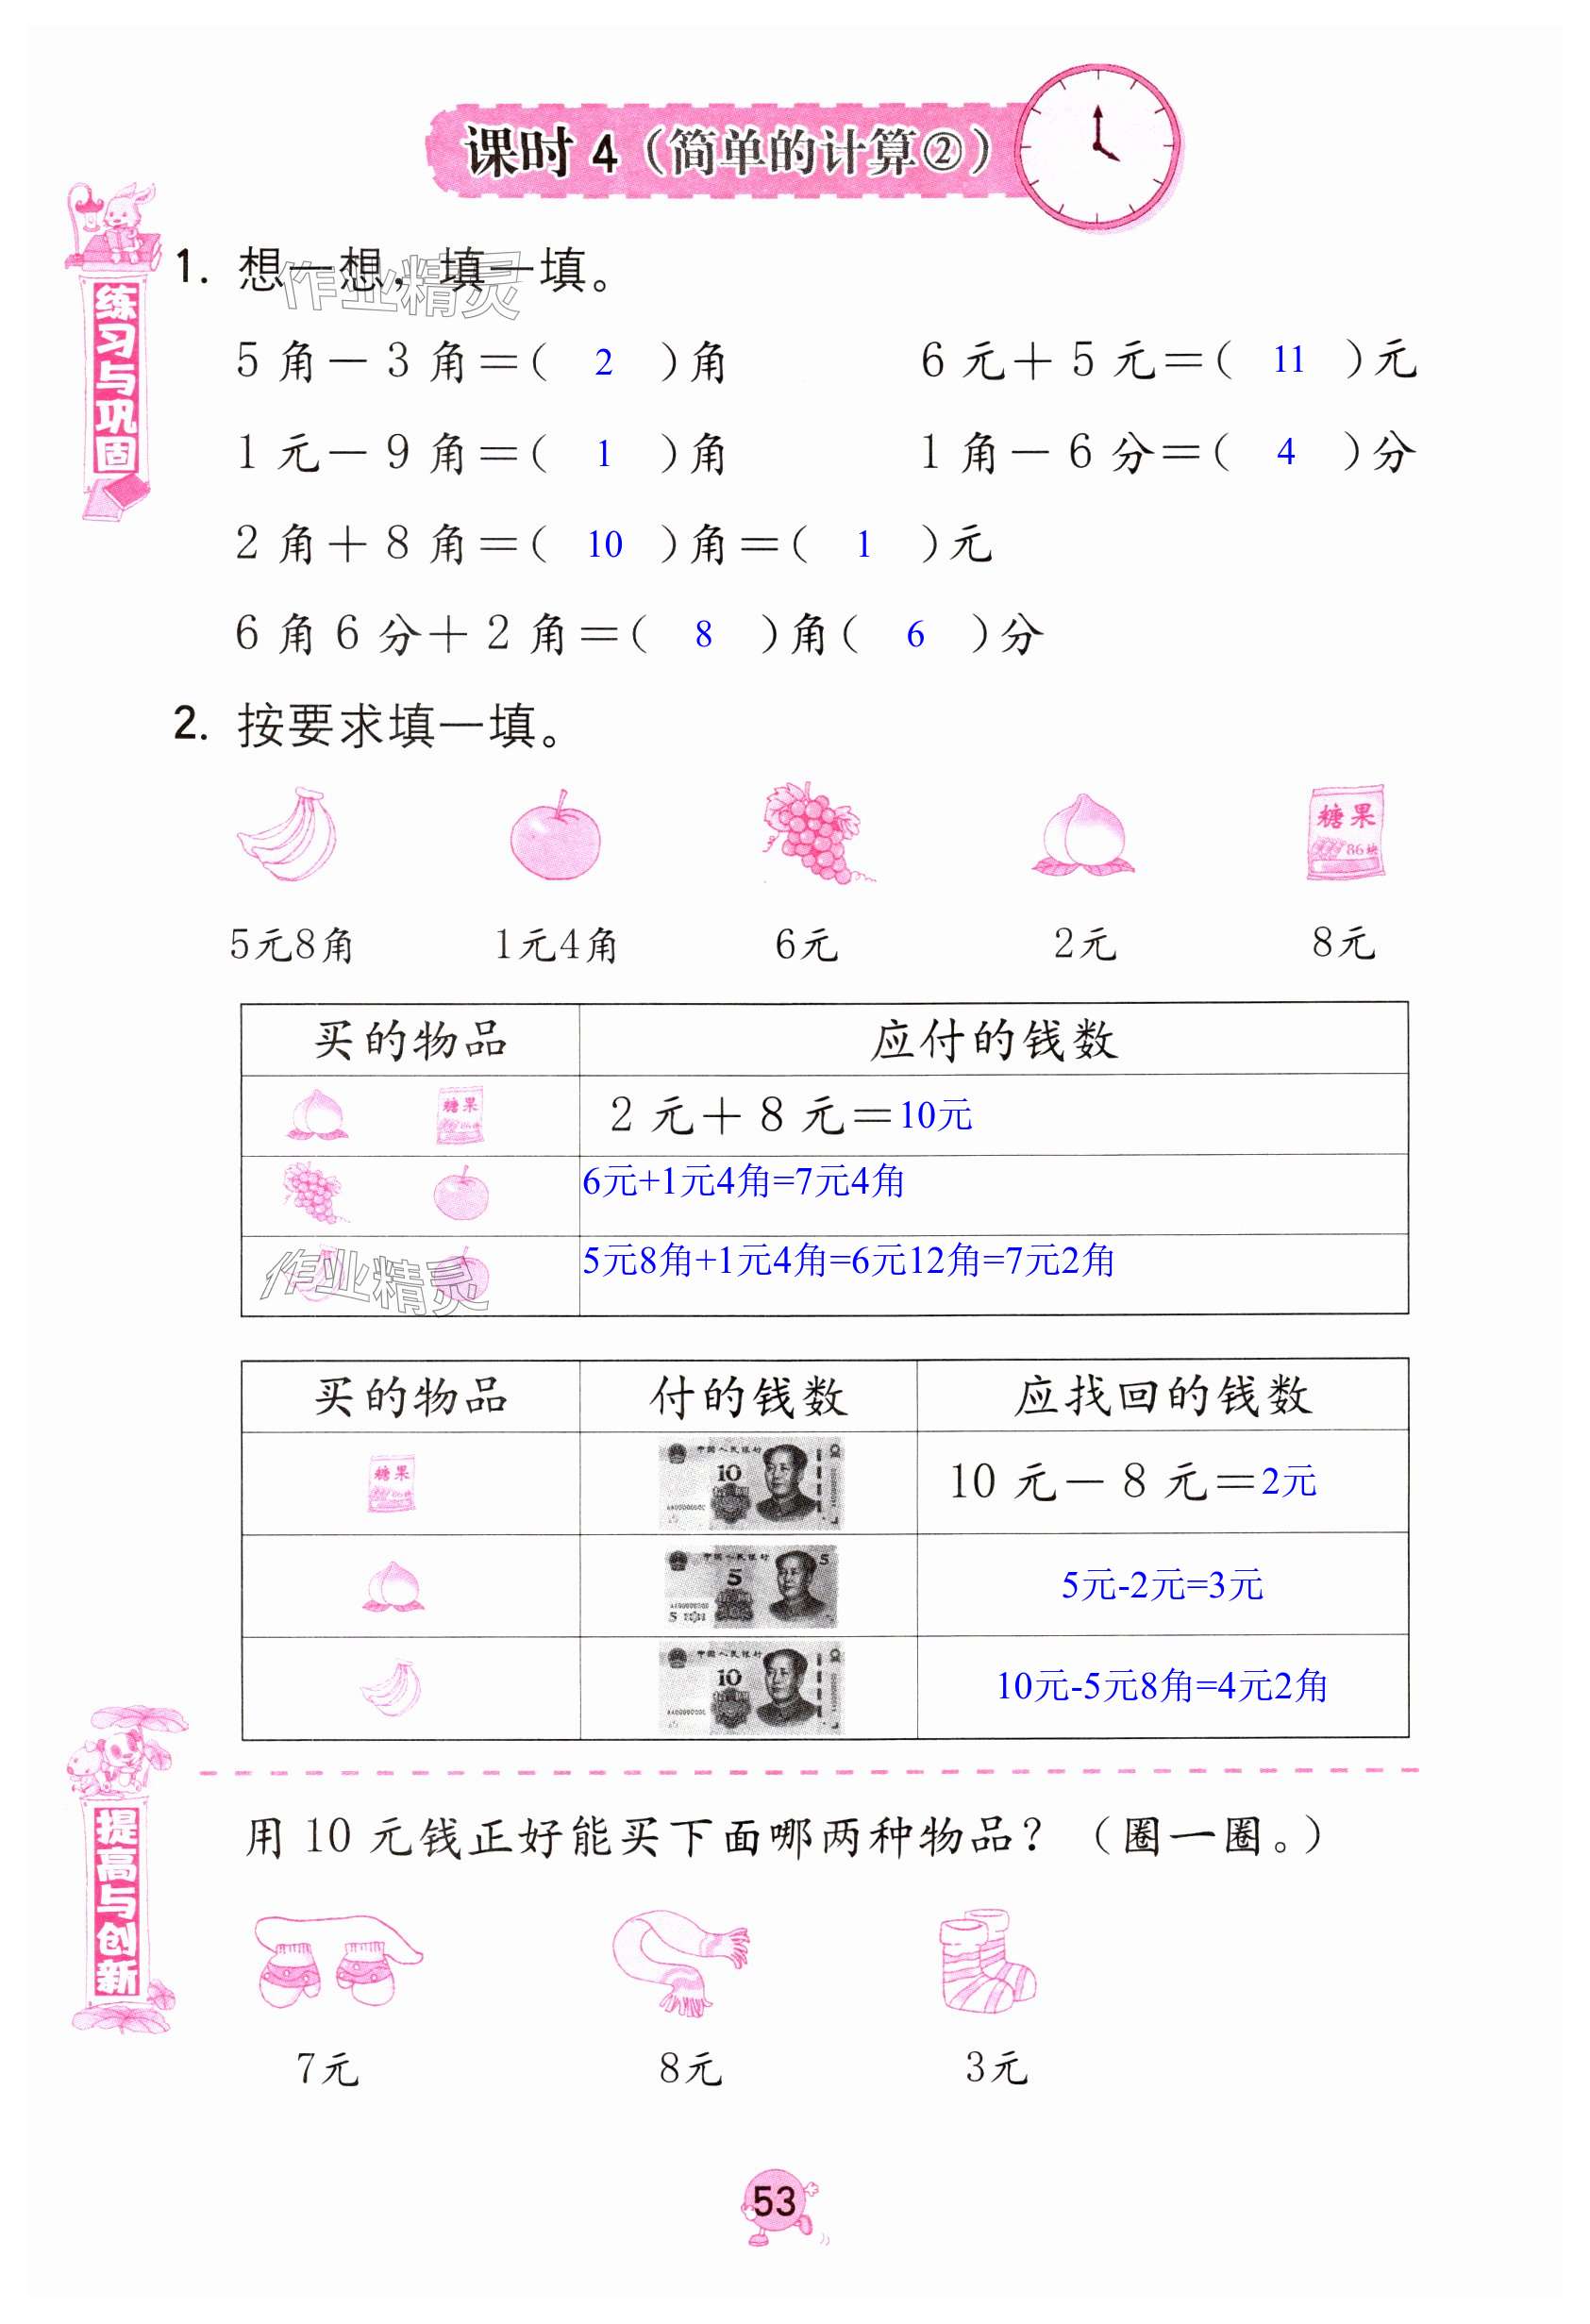 课时 4（简单的计算②）
练习与巩固
1. 想一想，填一填。
作业精灵
5 角－3 角＝（ 2 ）角 6 元＋5 元＝（ 11 ）元
1 元－9 角＝（ 1 ）角 1 角－6 分＝（ 4 ）分
2 角＋8 角＝（ 10 ）角＝（ 1 ）元
6 角 6 分＋2 角＝（ 8 ）角（ 6 ）分
2. 按要求填一填。
糖果
86块
5元8角 1元4角 6元 2元 8元
买的物品 应付的钱数
糖果 2 元＋8 元＝10元
6元+1元4角=7元4角
作业精灵 5元8角+1元4角=6元12角=7元2角
买的物品 付的钱数 应找回的钱数
糖果 中国人民银行 10 10 元－8 元＝2元
中国人民银行 5 5 5 5元-2元=3元
中国人民银行 10 10元-5元8角=4元2角
提高与创新
用 10 元钱正好能买下面哪两种物品？（圈一圈。）
7元 8元 3元
53